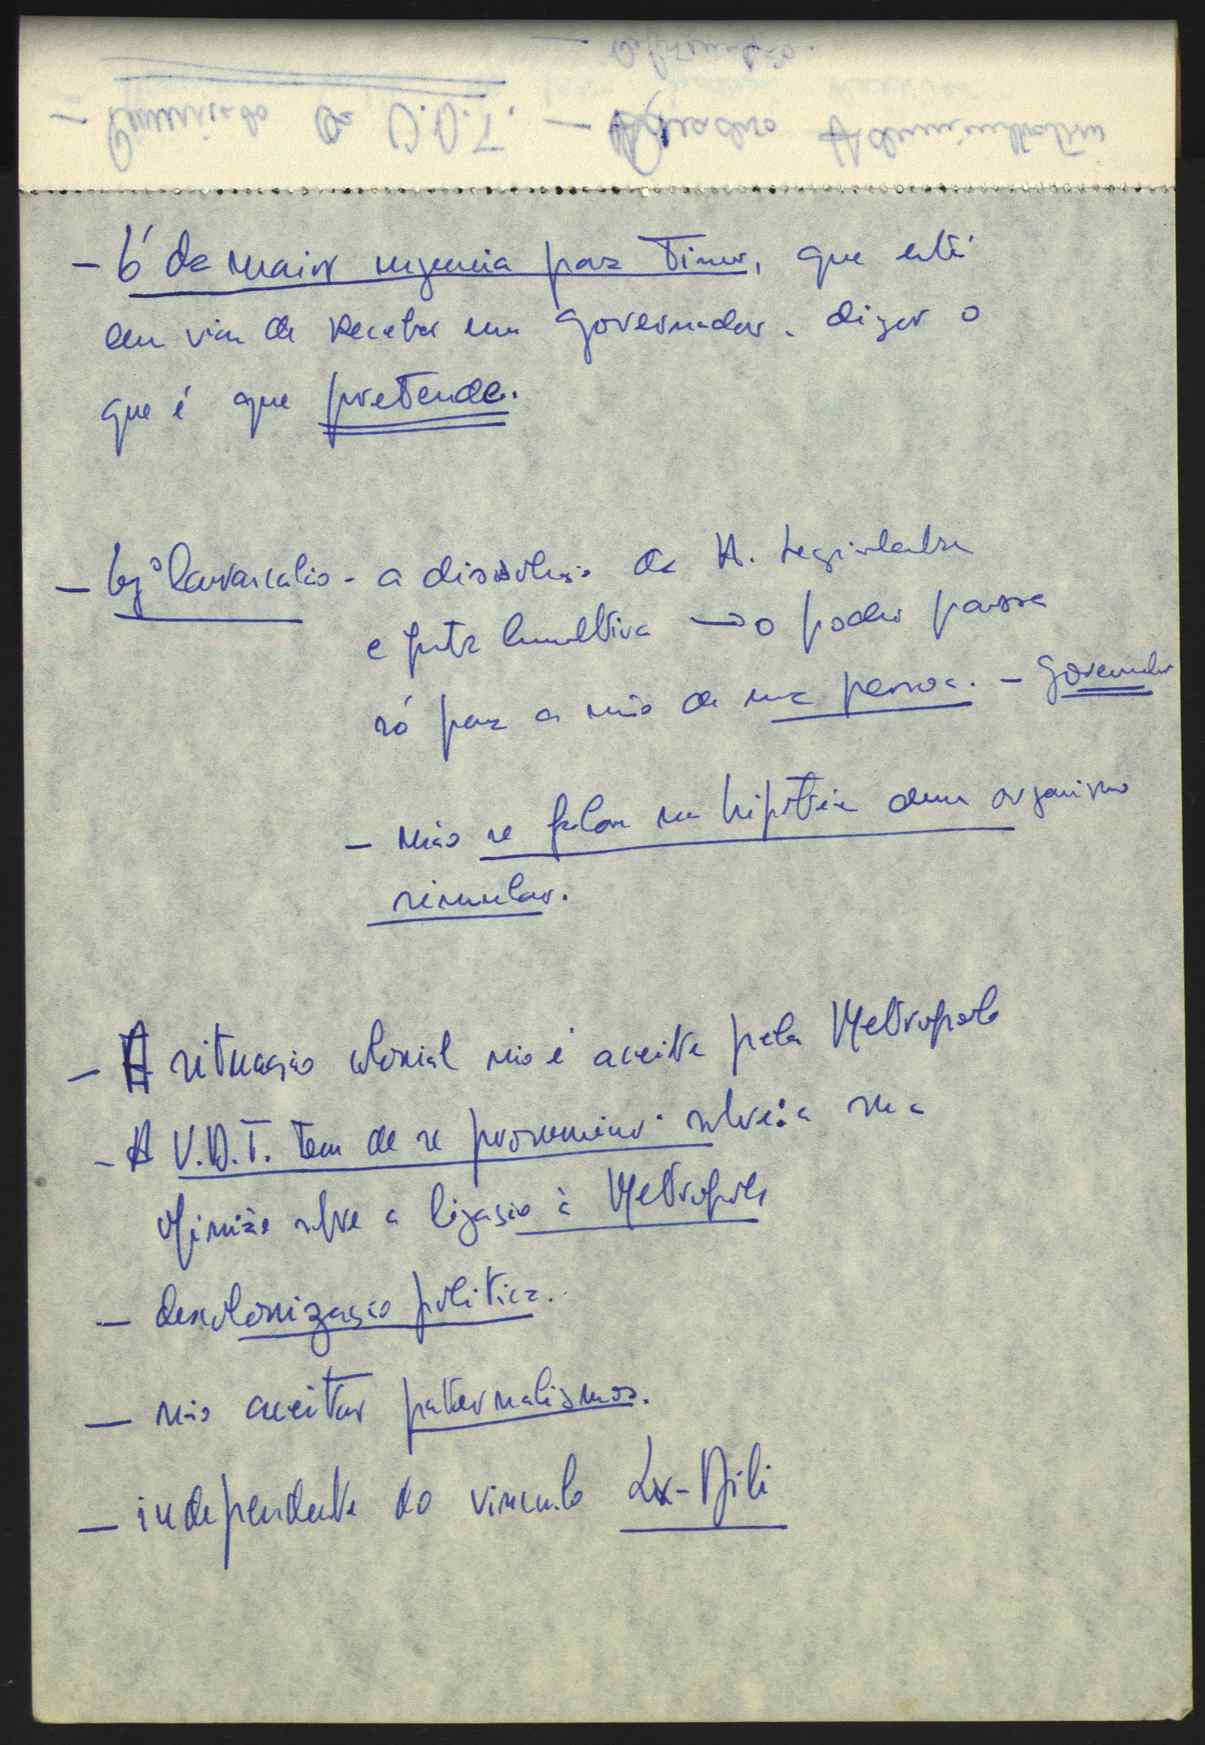 - É da maior urgencia para Timor, que está
em via de receber um governador. dizer o
que é que pretende.
- Engº Carrascalão - a dissolução da A. Legislativa
e Junta Consultiva → o poder passa
só para a mão de uma pessoa. - Governador
- não se falou na hipótese dum organismo
similar.
- A situação colonial não é aceite pela Metropole
- A U.D.T. tem de se pronunciar sobre: a sua
opinião sobre a ligação à Metropole
- descolonização politica.
- não aceitar paternalismos.
- independente do vinculo Lx-Dili